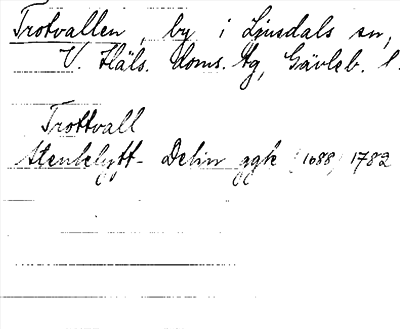 Trotvallen, by i Ljusdals sn,
V. Häls. doms. tg, Gävleb. l.
Trottvall
Stenbelytt- Delin ggk (1688) 1782